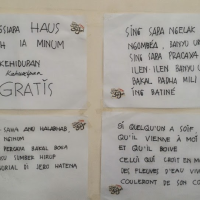 SIAPA HAUS
IA MINUM
KEHIDUPAN
GRATIS
SING SAPA NGELAK
NGOMBÉA, BANYU UR
SING SAPA PRACAYA
ILEN-ILEN BANYU U
BAKAL PADHA MILI
ING BATINÉ
SAHA ANU HALABHAB,
NGINUM
PERCAYA BAKAL BOKA
SUMBER HIRUP
JERO HATENA
SI QUELQU'UN A SOIF
QU'IL VIENNE À MOI
ET QU'IL BOIVE
CELUI QUI CROIT EN M
DES FLEUVES D'EAU VIV
COULERONT DE SON CO